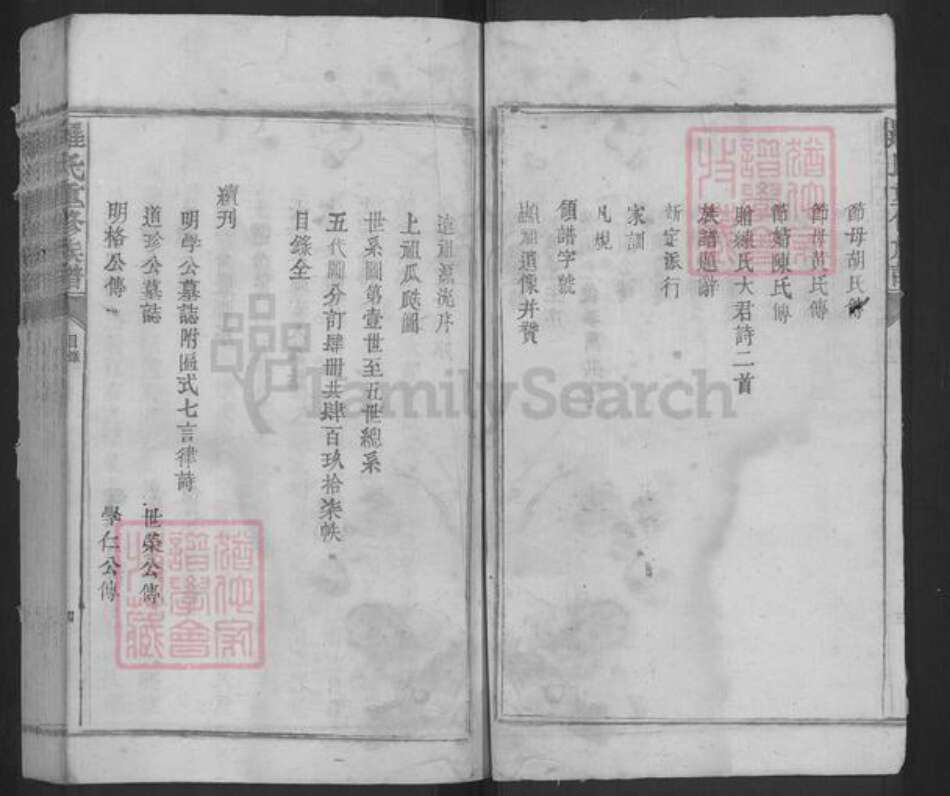 節母胡氏傳
節母黃氏傳
節婦陳氏傳
贈練氏大君詩二首
族譜題辭
新定派行
家訓
凡規
領譜字號
遠祖源流序
上祖瓜瓞圖
世系圖第壹世至五世總系
五代圖分訂肆冊共肆百玖拾柒帙
目錄全
續刊
明學公墓誌附匾式七言律詩
道珍公墓誌 世榮公傳
明格公傳 學仁公傳
羅氏重修族譜
目錄
FamilySearch